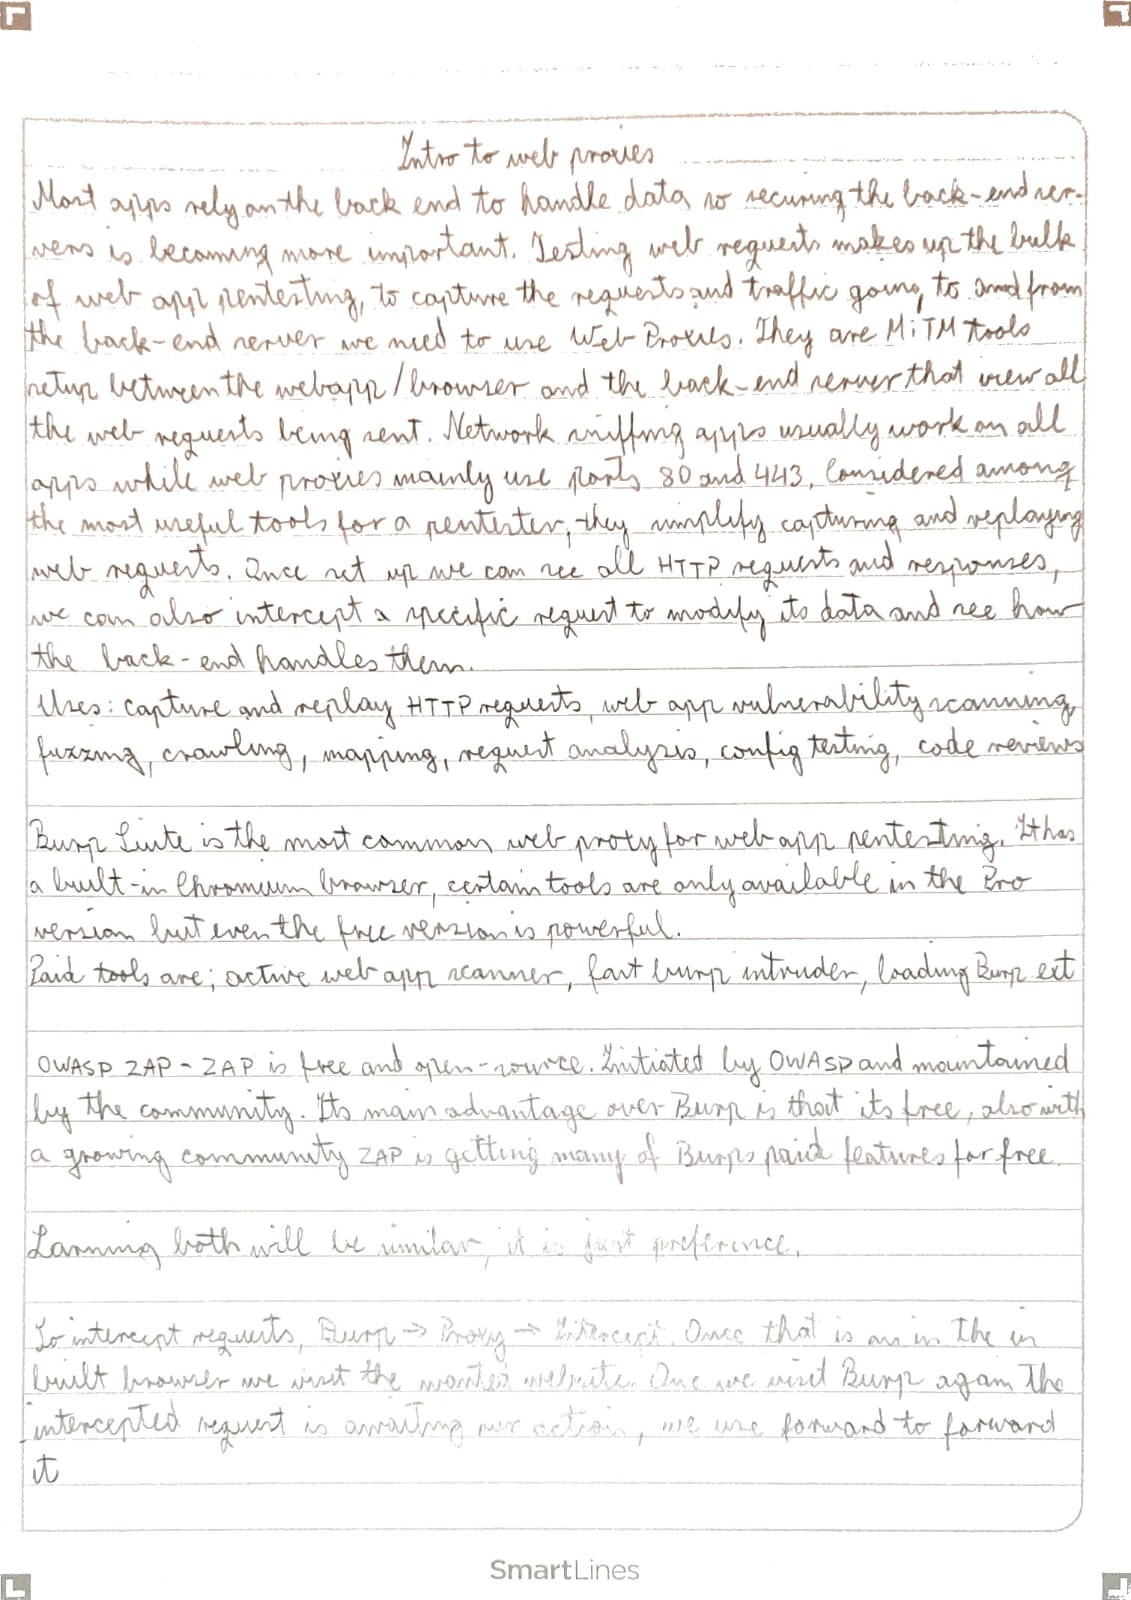 Intro to web proxies
Most apps rely on the back end to handle data so securing the back-end ser-
vers is becoming more important. Testing web requests makes up the bulk
of web app pentesting, to capture the requests and traffic going to and from
the back-end server we need to use Web Proxies. They are MiTM tools
setup between the webapp/browser and the back-end server that view all
the web requests being sent. Network sniffing apps usually work on all
apps while web proxies mainly use ports 80 and 443. Considered among
the most useful tools for a pentester, they simplify capturing and replaying
web requests. Once set up we can see all HTTP requests and responses,
we can also intercept a specific request to modify its data and see how
the back-end handles them.
Uses: capture and replay HTTP requests, web app vulnerability scanning,
fuzzing, crawling, mapping, request analysis, config testing, code reviews
Burp Suite is the most common web proxy for web app pentesting. It has
a built-in Chromium browser, certain tools are only available in the Pro
version but even the free version is powerful.
Paid tools are; active web app scanner, fast burp intruder, loading Burp ext
OWASP ZAP - ZAP is free and open-source. Initiated by OWASP and maintained
by the community. Its main advantage over Burp is that its free, also with
a growing community ZAP is getting many of Burps paid features for free.
Larning both will be similar, it is just preference.
To intercept requests, Burp → Proxy → Intercept. Once that is on in the in
built browser we visit the wanted website. One we visit Burp again the
intercepted request is awaiting our action, we use forward to forward
it
SmartLines